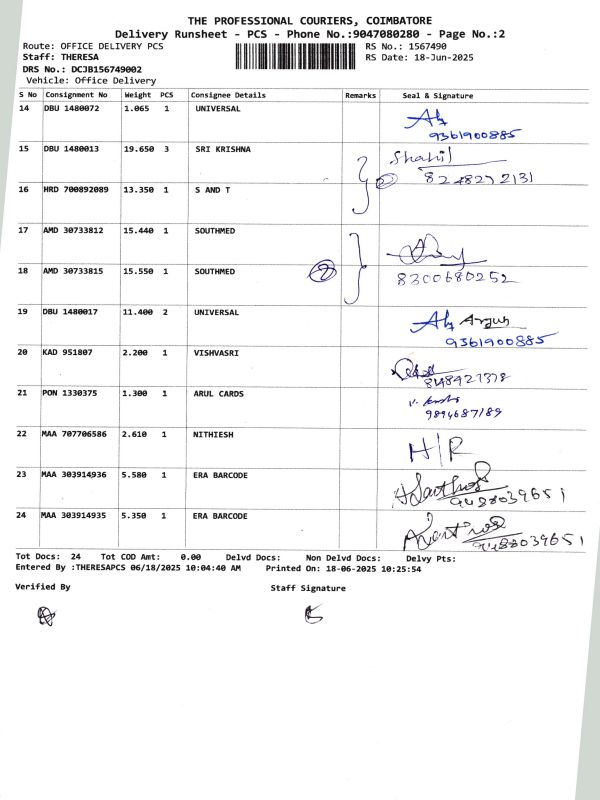 THE PROFESSIONAL COURIERS, COIMBATORE
Delivery Runsheet - PCS - Phone No.:9047080280 - Page No.:2
Route: OFFICE DELIVERY PCS RS No.: 1567490
Staff: THERESA RS Date: 18-Jun-2025
DRS No.: DCJB156749002
Vehicle: Office Delivery
S No Consignment No Weight PCS Consignee Details Remarks Seal & Signature
14 DBU 1480072 1.065 1 UNIVERSAL
9361900885
15 DBU 1480013 19.650 3 SRI KRISHNA Shahil
8248272131
16 HRD 700892089 13.350 1 S AND T
17 AMD 30733812 15.440 1 SOUTHMED
18 AMD 30733815 15.550 1 SOUTHMED 2 8300680252
19 DBU 1480017 11.400 2 UNIVERSAL
9361900885
20 KAD 951807 2.200 1 VISHVASRI
21 PON 1330375 1.300 1 ARUL CARDS
9894687189
22 MAA 707706586 2.610 1 NITHIESH H/R
23 MAA 303914936 5.580 1 ERA BARCODE
9488039651
24 MAA 303914935 5.350 1 ERA BARCODE
9488039651
Tot Docs: 24 Tot COD Amt: 0.00 Delvd Docs: Non Delvd Docs: Delvy Pts:
Entered By :THERESAPCS 06/18/2025 10:04:40 AM Printed On: 18-06-2025 10:25:54
Verified By Staff Signature